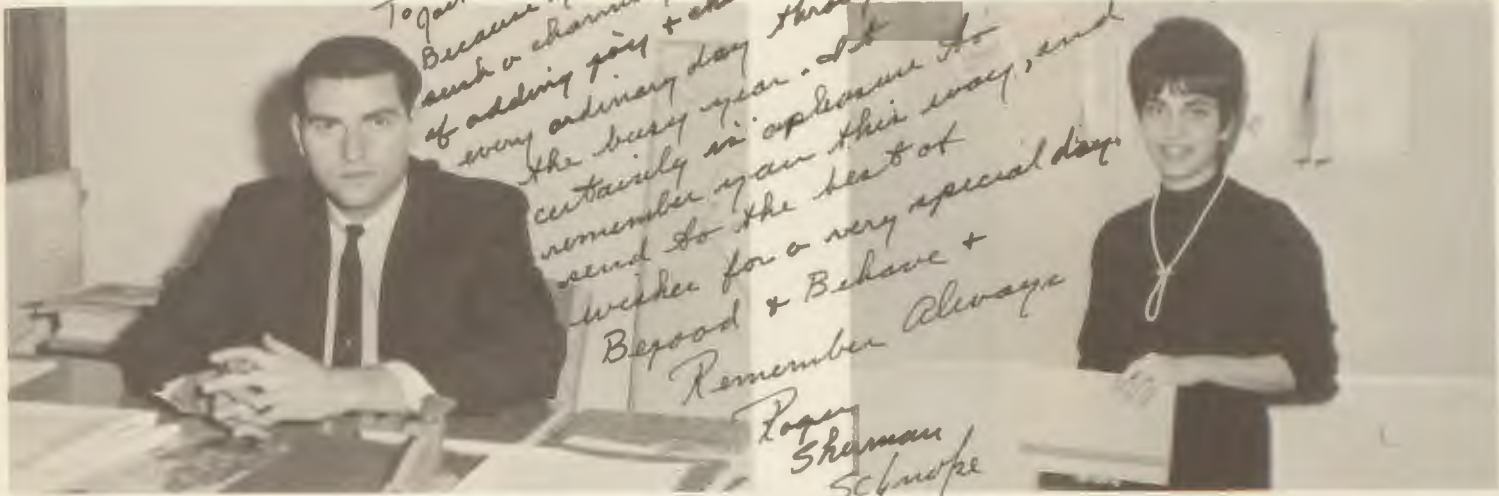 To
Because
such a charming
of adding joy +
every ordinary day
the busy year. It
certainly is a pleasure to
remember you this way, and
send to the best of
wishes for a very special day.
Begood & Behave +
Remember Always
Roger
Sherman